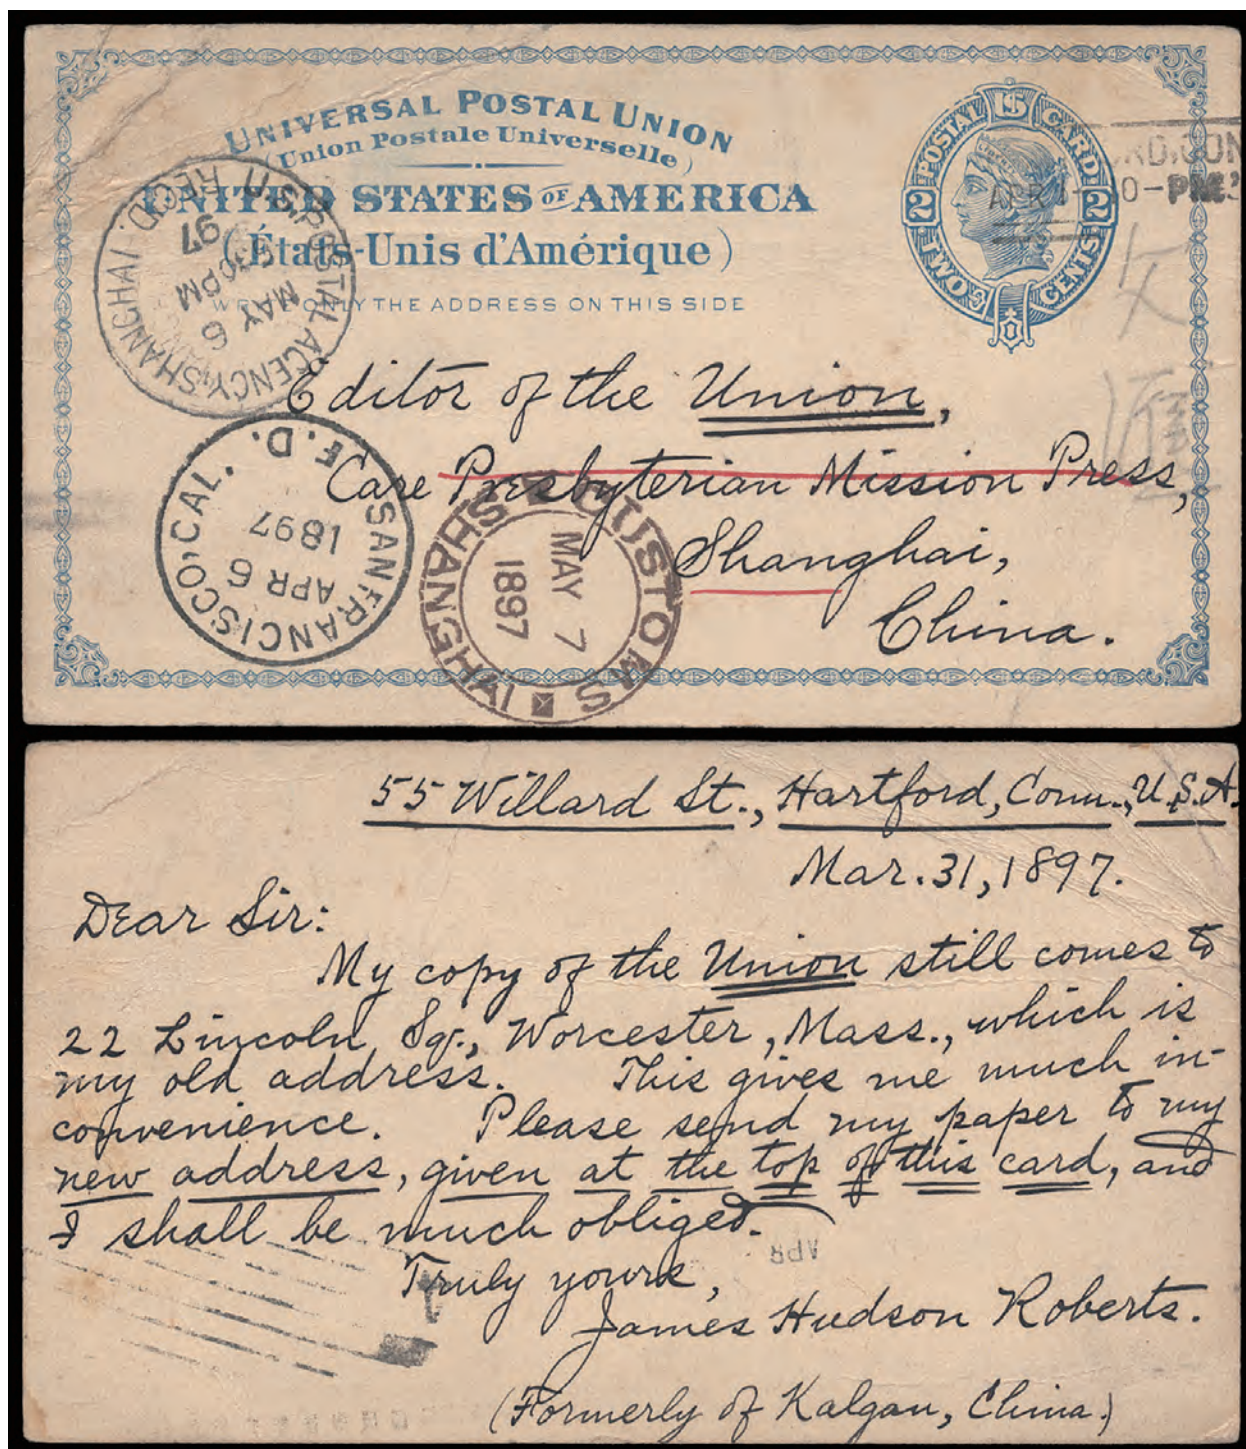 UNIVERSAL POSTAL UNION
(Union Postale Universelle)
UNITED STATES OF AMERICA
(États-Unis d'Amérique)
WRITE ONLY THE ADDRESS ON THIS SIDE
POSTAL CARD
U S
2 2
TWO CENTS
APR
U.S. POSTAL AGENCY SHANGHAI. REC'D.
MAY 6
PM
97
SAN FRANCISCO, CAL. F.D.
APR 6
1897
CUSTOMS SHANGHAI
MAY 7
1897
Editor of the Union,
Care Presbyterian Mission Press,
Shanghai,
China.
55 Willard St., Hartford, Conn., U.S.A.
Mar. 31, 1897.
Dear Sir:
My copy of the Union still comes to
22 Lincoln Sq., Worcester, Mass., which is
my old address. This gives me much in-
convenience. Please send my paper to my
new address, given at the top of this card, and
I shall be much obliged.
APR
Truly yours,
James Hudson Roberts.
(Formerly of Kalgan, China.)